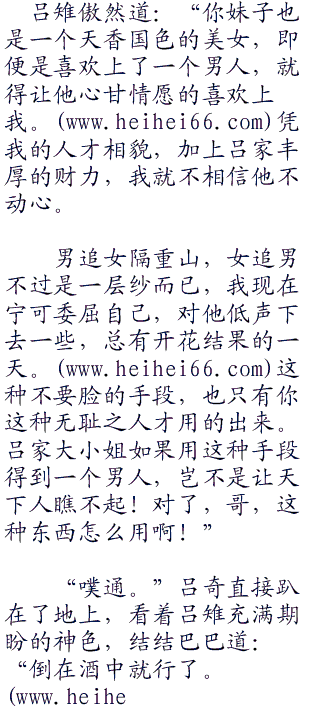 吕雉傲然道：“你妹子也
是一个天香国色的美女，即
便是喜欢上了一个男人，就
得让他心甘情愿的喜欢上
我。(www.heihei66.com)凭
我的人才相貌，加上吕家丰
厚的财力，我就不相信他不
动心。
男追女隔重山，女追男
不过是一层纱而已，我现在
宁可委屈自己，对他低声下
去一些，总有开花结果的一
天。(www.heihei66.com)这
种不要脸的手段，也只有你
这种无耻之人才用的出来。
吕家大小姐如果用这种手段
得到一个男人，岂不是让天
下人瞧不起！对了，哥，这
种东西怎么用啊！”
“噗通。”吕奇直接趴
在了地上，看着吕雉充满期
盼的神色，结结巴巴道：
“倒在酒中就行了。
(www.heihe